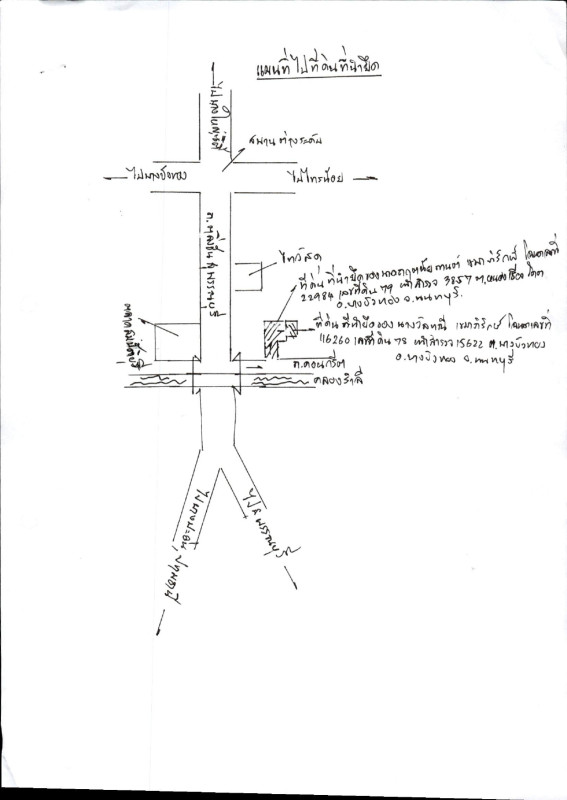 แผนที่ไปที่ดินที่นำยึด
ไปบางใหญ่ซิตี้
สพานต่างระดับ
ไปบางบัวทอง
ไปไทรน้อย
ถ.ตลิ่งชัน สุพรรณบุรี
ไทวัสดุ
ที่ดินที่นำยึดของ เขมาภิรักษ์ โฉนดเลขที่
22984 เลขที่ดิน 79 หน้าสำรวจ 3857 ต.
อ.บางบัวทอง จ.นนทบุรี
ที่ดินที่นำยึดของ เขมาภิรักษ์ โฉนดเลขที่
116260 เลขที่ดิน 78 หน้าสำรวจ 15622 ต.บางบัวทอง
อ.บางบัวทอง จ.นนทบุรี
ตลาด
ถ.คอนกรีต
ไปสุพรรณบุรี
ไปบางปะอิน
ปทุมธานี